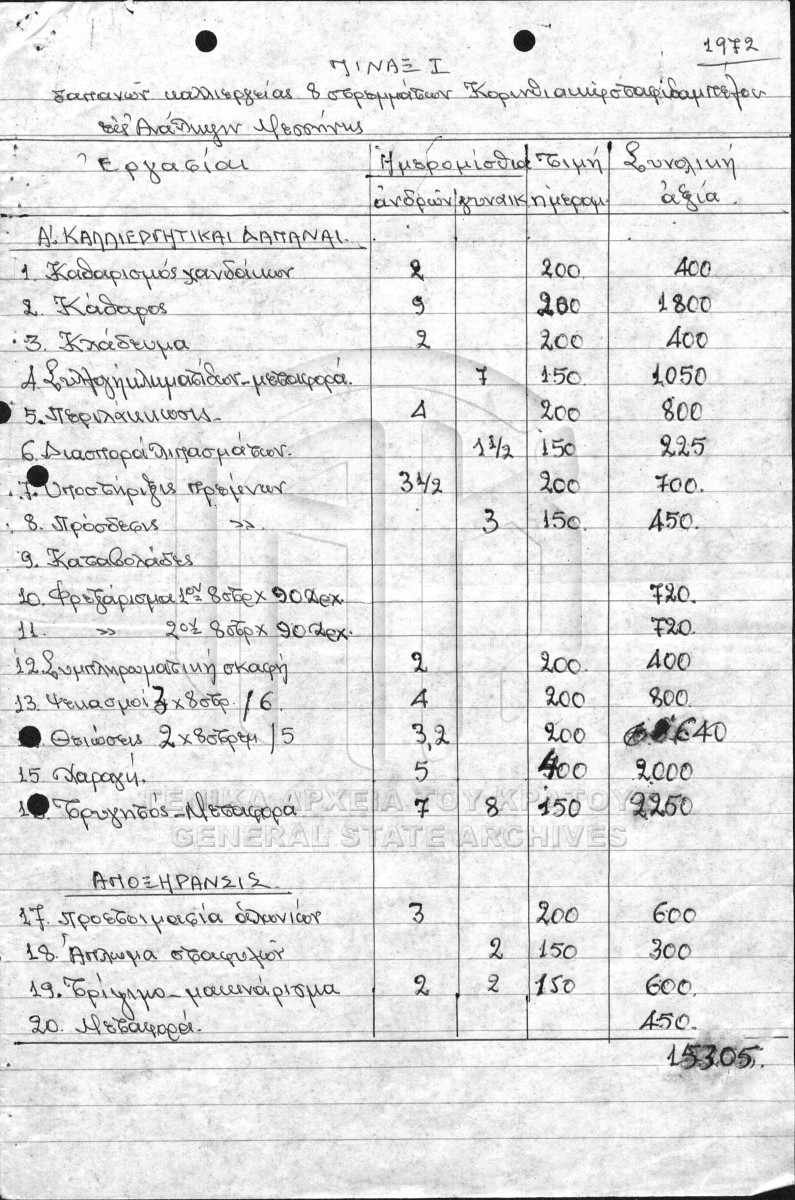 1972
ΠΙΝΑΞ Ι
δαπανών καλλιεργείας 8 στρεμμάτων Κορινθιακής σταφιδαμπέλου
εις Ανάληψιν Μεσσήνης
Ἐργασίαι Ημερομίσθια Τιμή Συνολική
ἀνδρών γυναικ ημερομ. ἀξία.
Α'. ΚΑΛΛΙΕΡΓΗΤΙΚΑΙ ΔΑΠΑΝΑΙ.
1. Καθαρισμός χανδάκων 2 200 400
2. Κάθαρος 9 200 1800
3. Κλάδευμα 2 200 400
4. Συλλογή κλιματίδων - μεταφορά. 7 150. 1050
5. Περιλάκκωσις - 4 200 800
6. Διασπορά λιπασμάτων. 1 1/2 150 225
7. Υποστήριξις πρέμνων 3 1/2 200 700.
8. Πρόσδεσις >> 3 150. 450.
9. Καταβολάδες
10. Φρεζάρισμα 1ον 8στρ x 90 Δρχ. 720.
11. >> 2ον 8στρ x 90 Δρχ. 720.
12. Συμπληρωματική σκαφή 2 200. 400
13. Ψεκασμοί 3 x 8στρ. / 6. 4 200 800.
Θειώσεις 2 x 8στρεμ / 5 3,2 200 640
15. Χαραγή. 5 400 2000
Τρυγητός - Μεταφορά 7 8 150 2250
ΓΕΝΙΚΑ ΑΡΧΕΙΑ ΤΟΥ ΚΡΑΤΟΥΣ
GENERAL STATE ARCHIVES
ΑΠΟΞΗΡΑΝΣΙΣ.
17. Προετοιμασία αλωνίων 3 200 600
18. Άπλωμα σταφυλών 2 150 300
19. Τρίψιμο - μακινάρισμα 2 2 150 600.
20. Μεταφορά. 450.
15305.